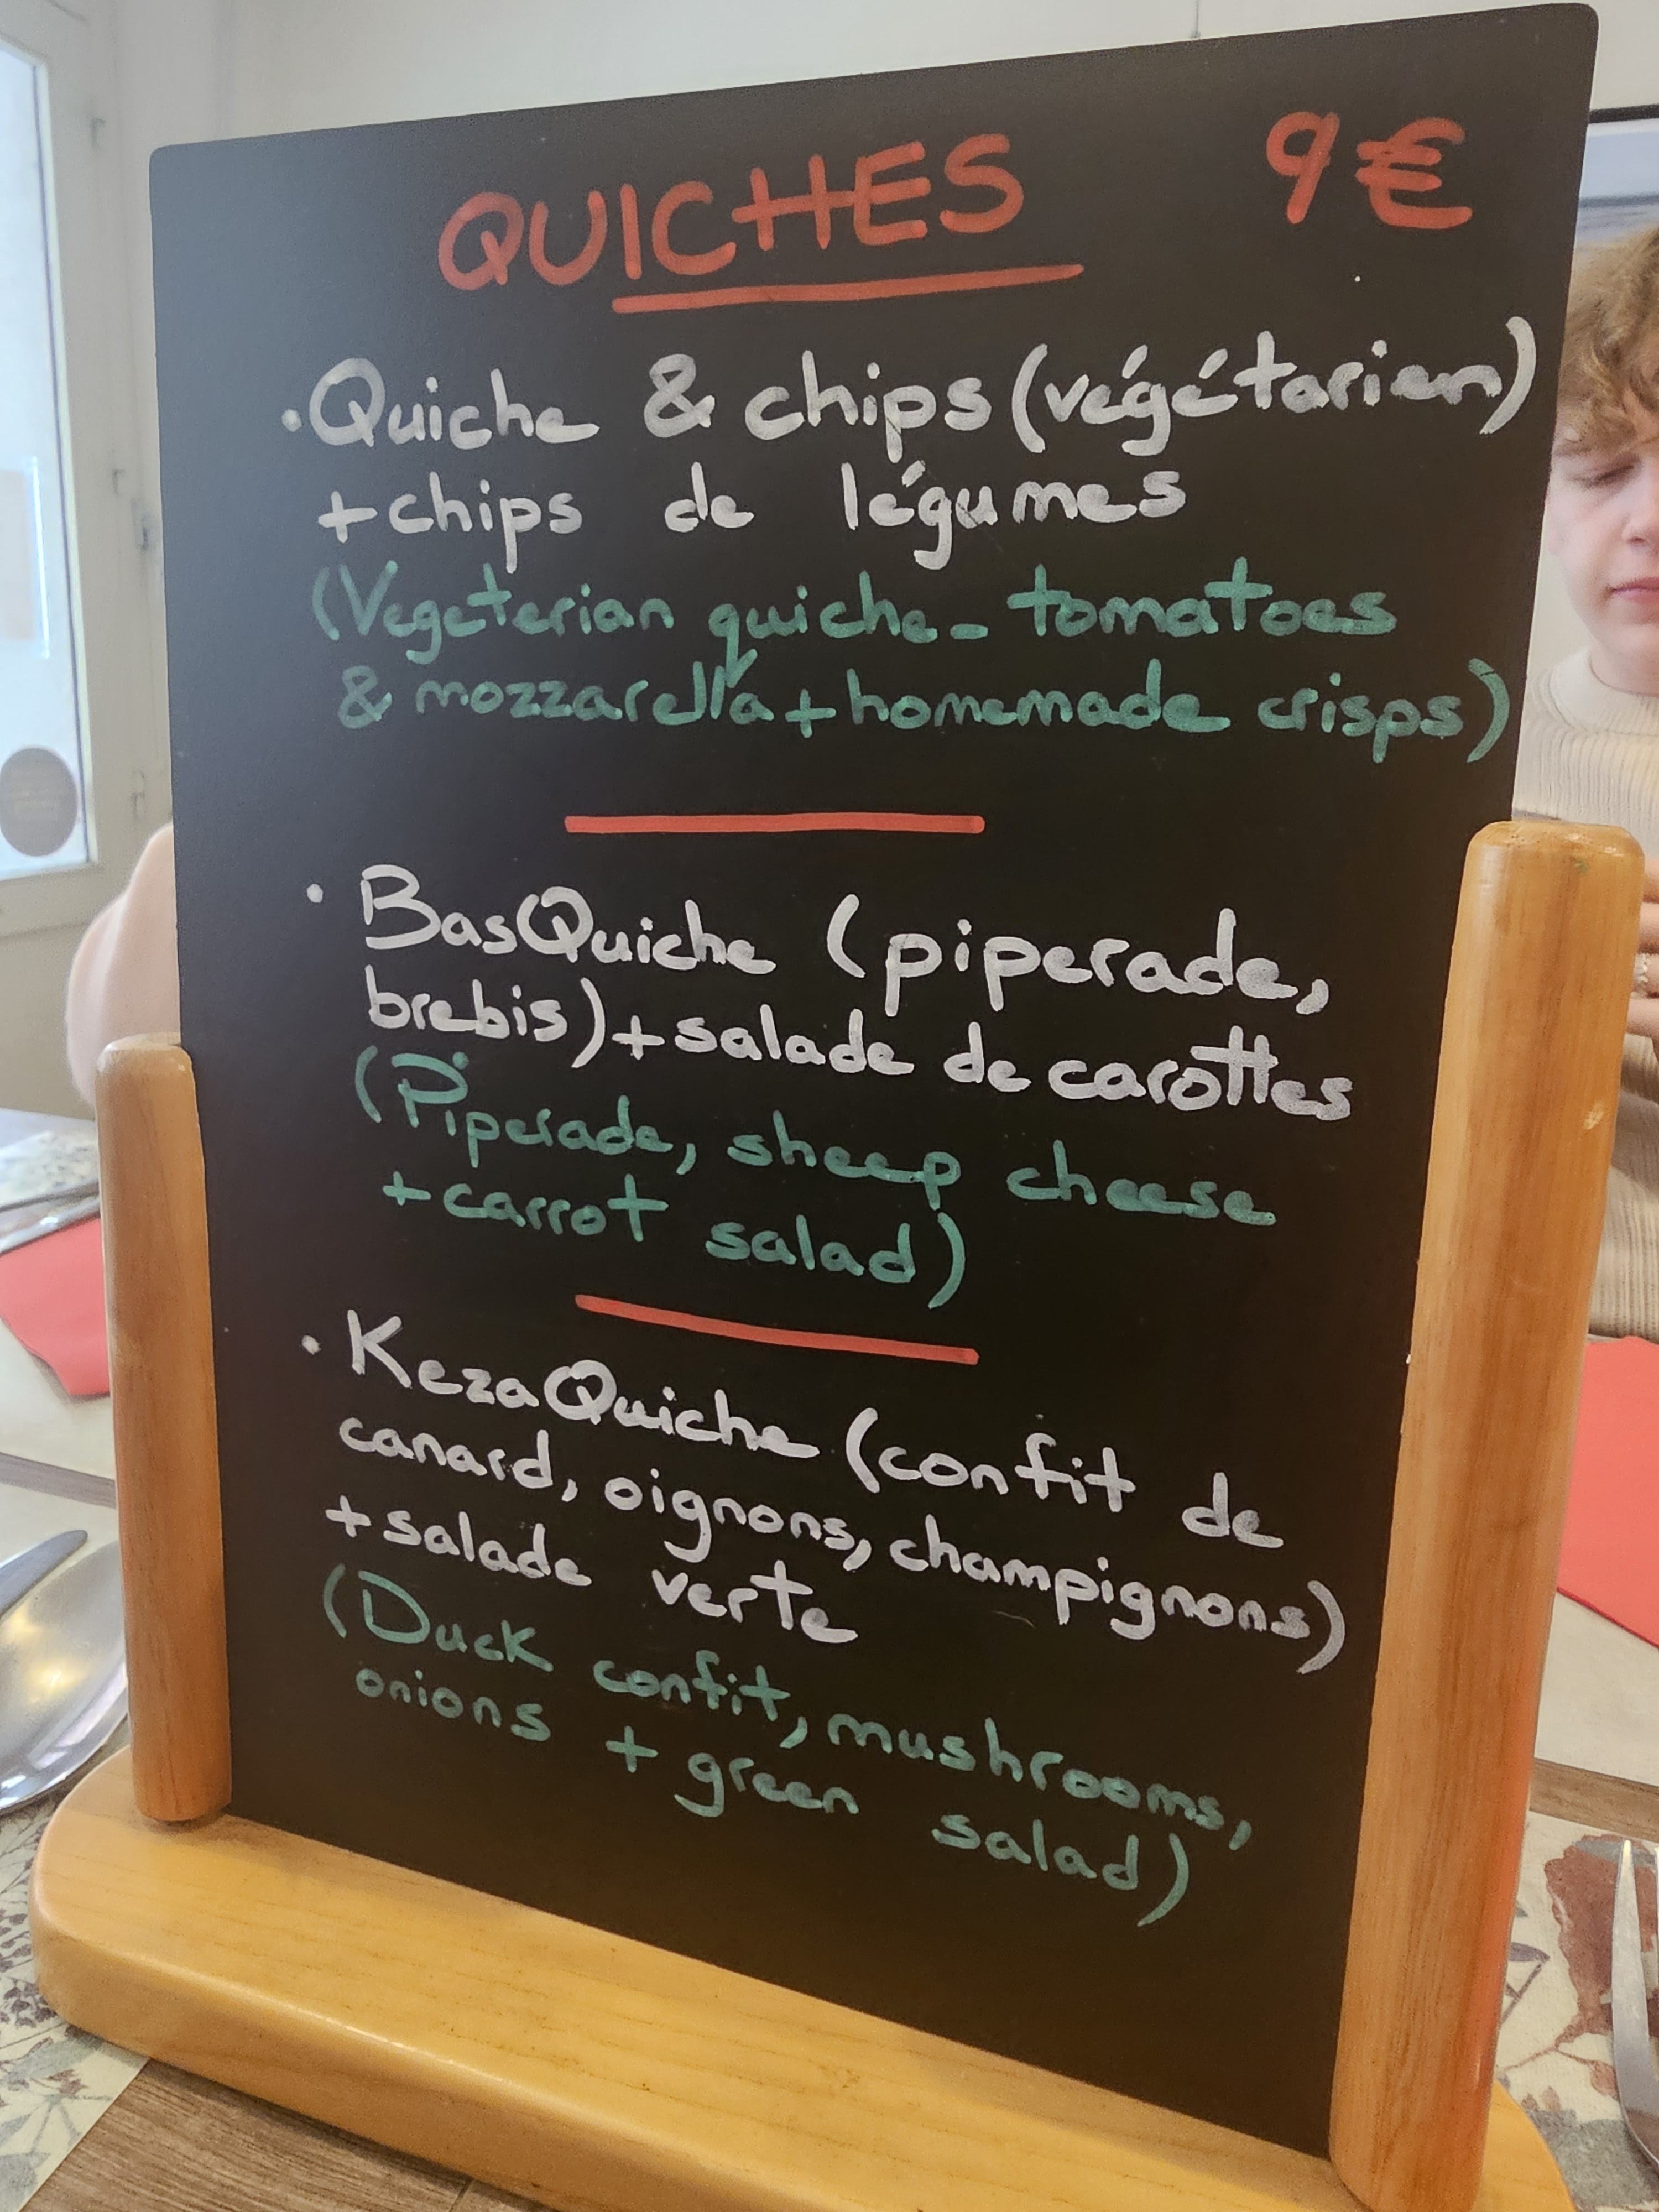 QUICHES 9€
• Quiche & chips (végétarien)
+ chips de légumes
(Vegeterian quiche - tomatoes
& mozzarella + homemade crisps)
• BasQuiche (piperade,
brebis) + salade de carottes
(Piperade, sheep cheese
+ carrot salad)
• KezaQuiche (confit de
canard, oignons, champignons)
+ salade verte
(Duck confit, mushrooms,
onions + green salad)